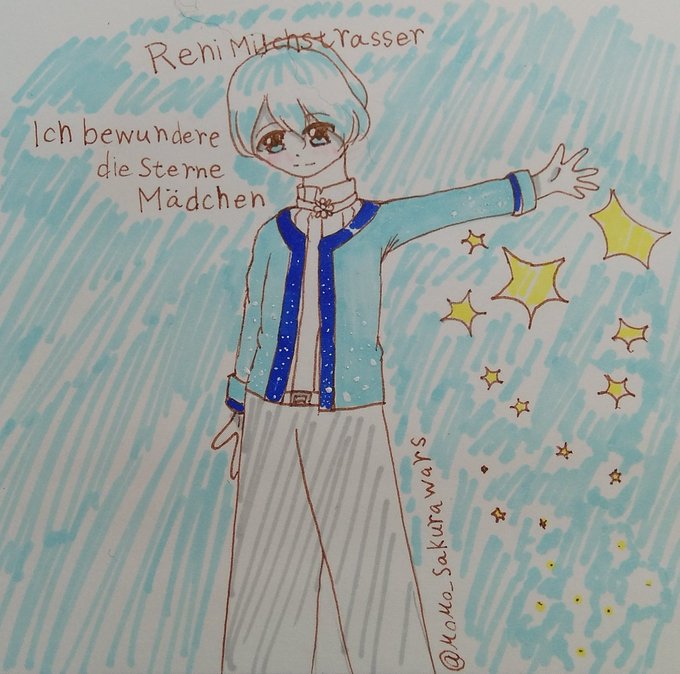 Reni Milchstrasser
Ich bewundere
die Sterne
Mädchen
@momo_sakurawars